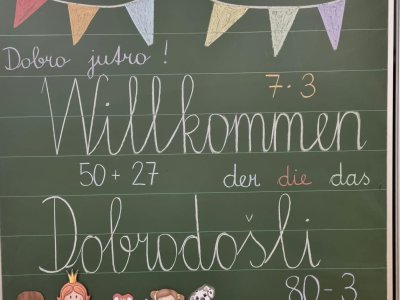 Dobro jutro !
7 · 3
Willkommen
50 + 27
der die das
Dobrodošli
80 - 3